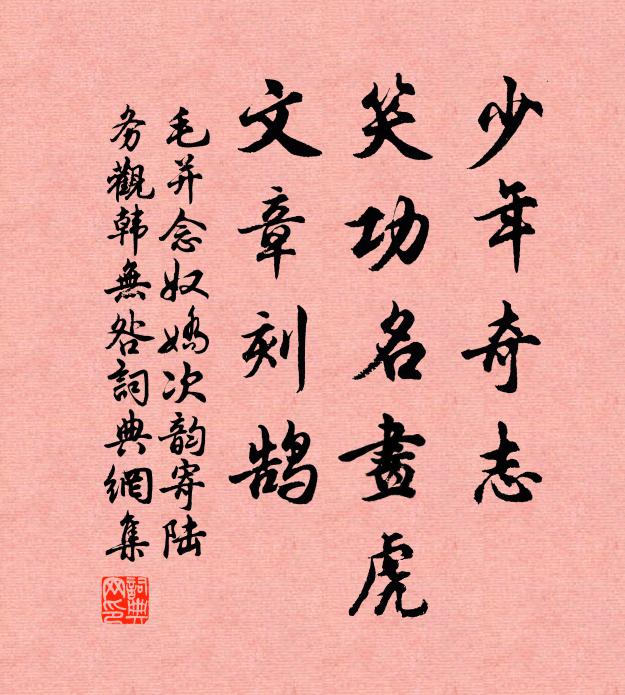 少年奇志
笑功名畫虎
文章刻鵠
毛幵念奴嬌次韵寄陆
务觀韩無咎詞典網集
詞典網印